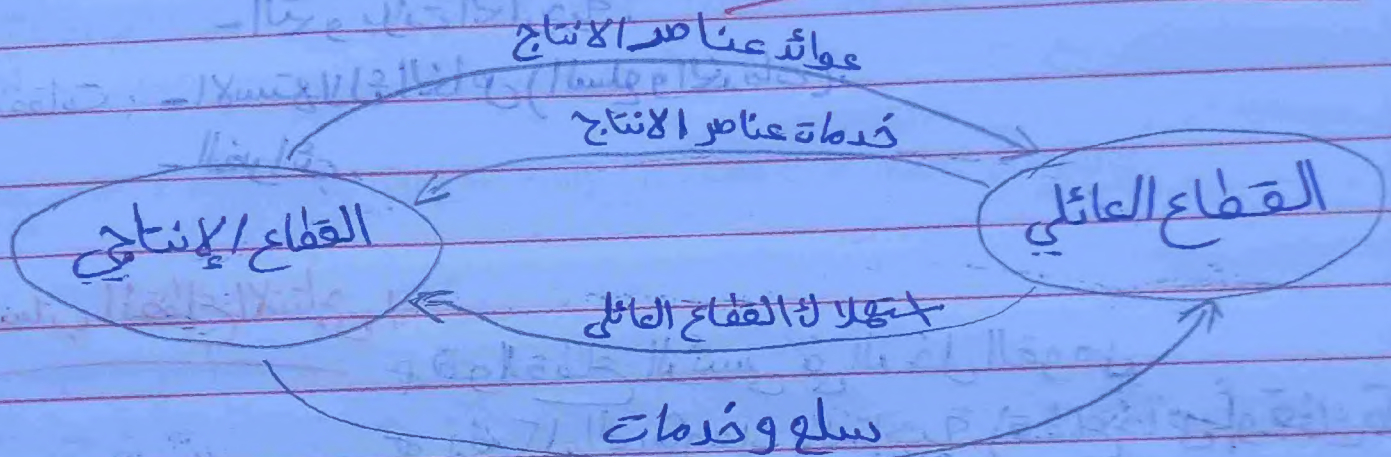 عوائد عناصر الانتاج
خدمات عناصر الانتاج
القطاع العائلي
القطاع الإنتاجي
استهلاك القطاع العائلي
سلع وخدمات